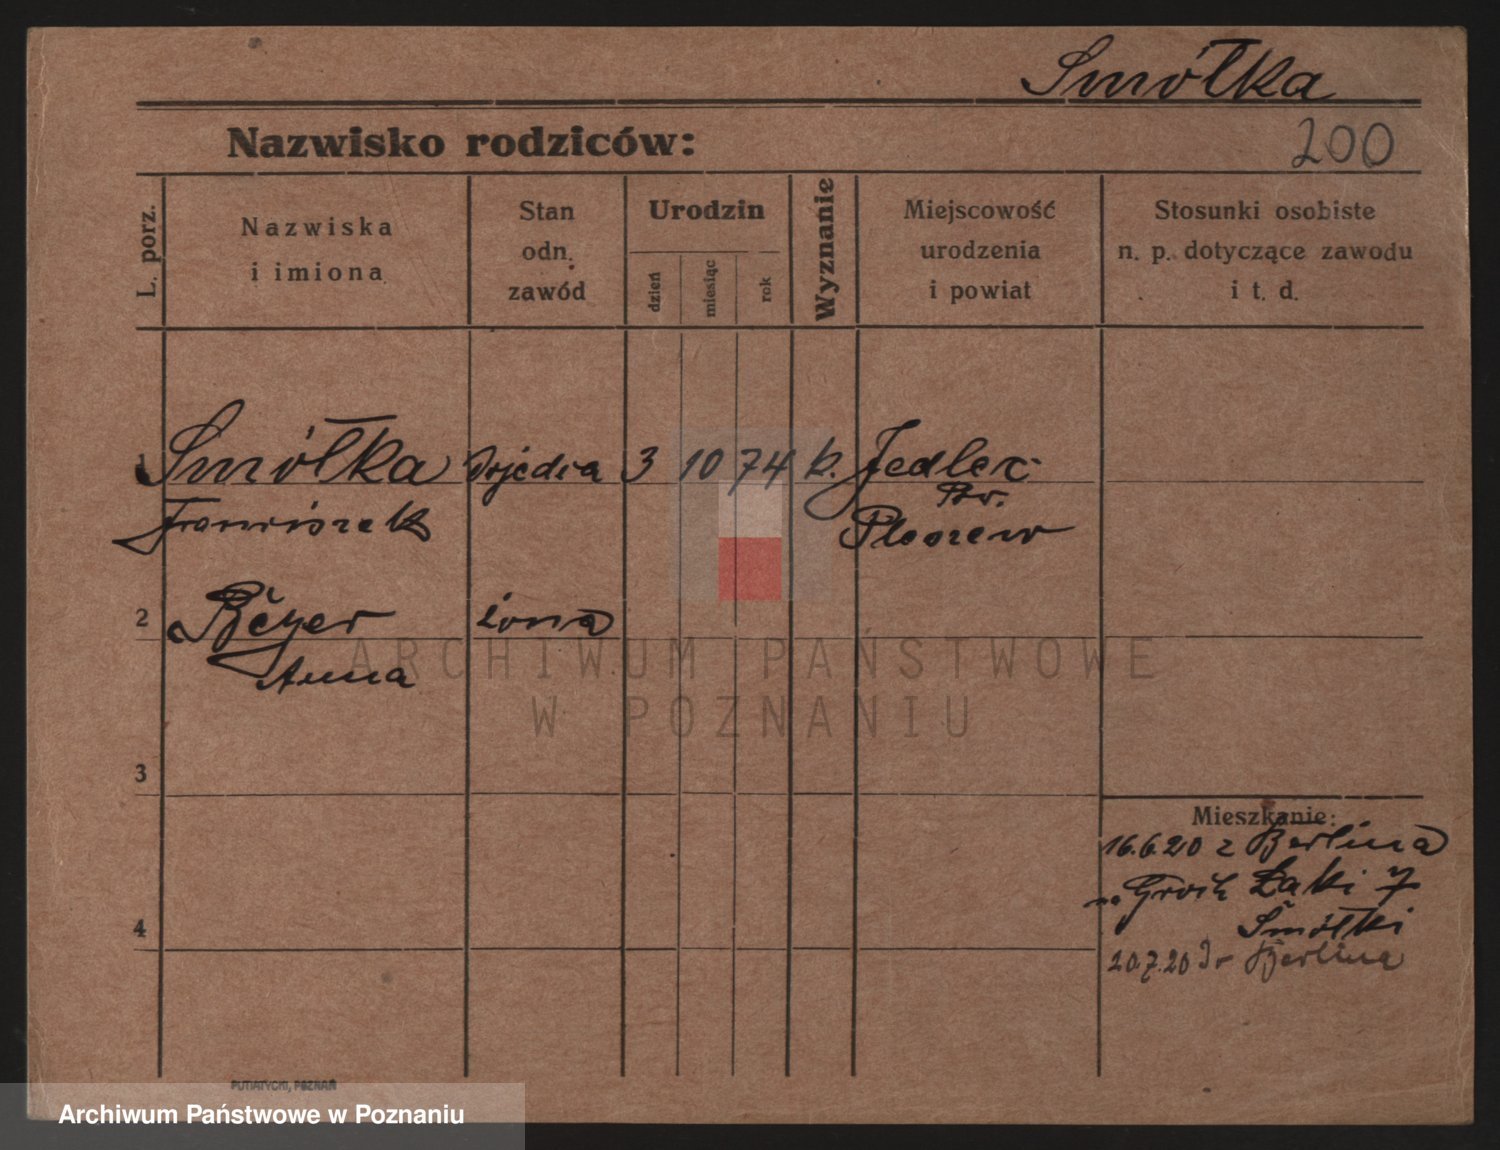 Smółka
Nazwisko rodziców:
200
L. porz.
Nazwiska
i imiona
Stan
odn.
zawód
Urodzin
dzień
miesiąc
rok
Wyznanie
Miejscowość
urodzenia
i powiat
Stosunki osobiste
n. p. dotyczące zawodu
i t. d.
1 Smółka 3 10 74 k. Jedlec
Franciszek Pow.
Pleszew
2 Beyer żona
Anna
3
Mieszkanie:
16.6.20 z Berlina
na Łąki 7
4
Smółki
20.7.20 Berlina
ARCHIWUM PAŃSTWOWE
W POZNANIU
PUTIATYCKI, POZNAŃ
Archiwum Państwowe w Poznaniu